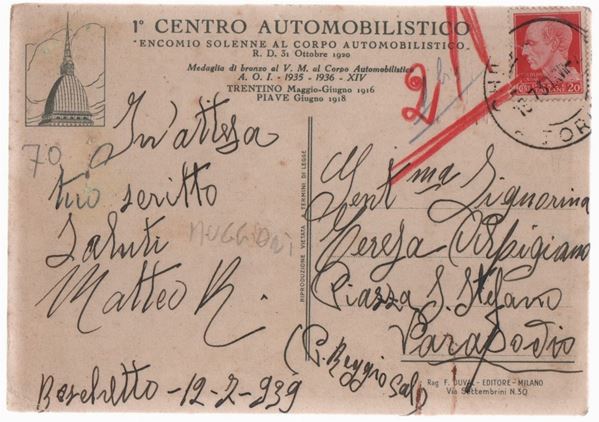 1° CENTRO AUTOMOBILISTICO
"ENCOMIO SOLENNE AL CORPO AUTOMOBILISTICO"
R. D. 31 Ottobre 1920
Medaglia di bronzo al V. M. al Corpo Automobilistico
A. O. I. - 1935 - 1936 - XIV
TRENTINO Maggio-Giugno 1916
PIAVE Giugno 1918
2
20
70
In attesa
tuo scritto
Saluti
Matteo R.
MUGGIONI
Boschetto - 12-7-939
RIPRODUZIONE VIETATA A TERMINI DI LEGGE
Gent.ma Signorina
Teresa
Piazza S. Stefano
(P. Reggio
Rag. F. DUVAL - EDITORE - MILANO
Via Settembrini N. 30